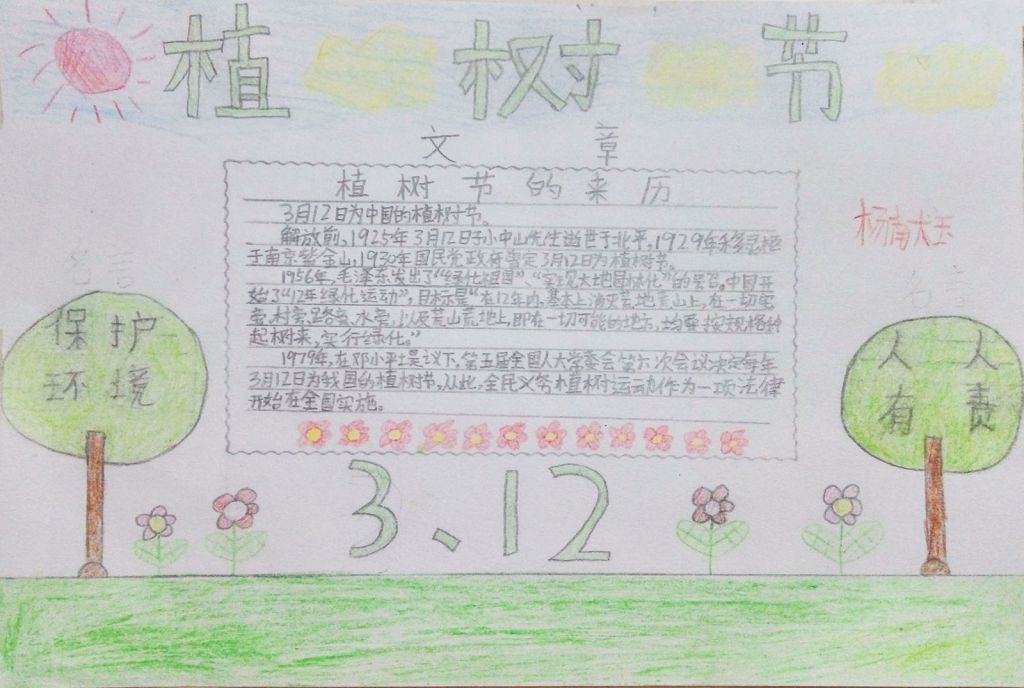 植树节
文章
植树节的来历
3月12日为中国的植树节。
解放前,1925年3月12日孙中山先生逝世于北平,1929年
于南京紫金山,1930年国民党政府 定3月12日为植树节。
1956年,毛泽东发出了“绿化祖国”、“实现大地园林化”的号召。中国开
始了“12年绿化运动”,目标是“在12年内,基本上消灭荒地荒山上,在一切宅
旁,村旁,路旁,水旁,以及荒山荒地上,即在一切可能的地方,均要按规格种
起树来,实行绿化。”
1979年,在邓小平提议下,第五届全国人大常委会第六次会议决定每年
3月12日为我国的植树节。从此,全民义务植树运动作为一项法律
开始在全国实施。
名言
保护
环境
名言
人人
有责
3、12